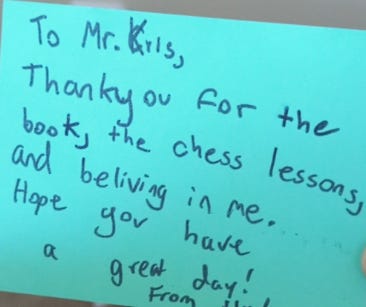 To Mr. Kris,
Thankyou for the
book, the chess lessons,
and beliving in me......
Hope you have
a great day!
From